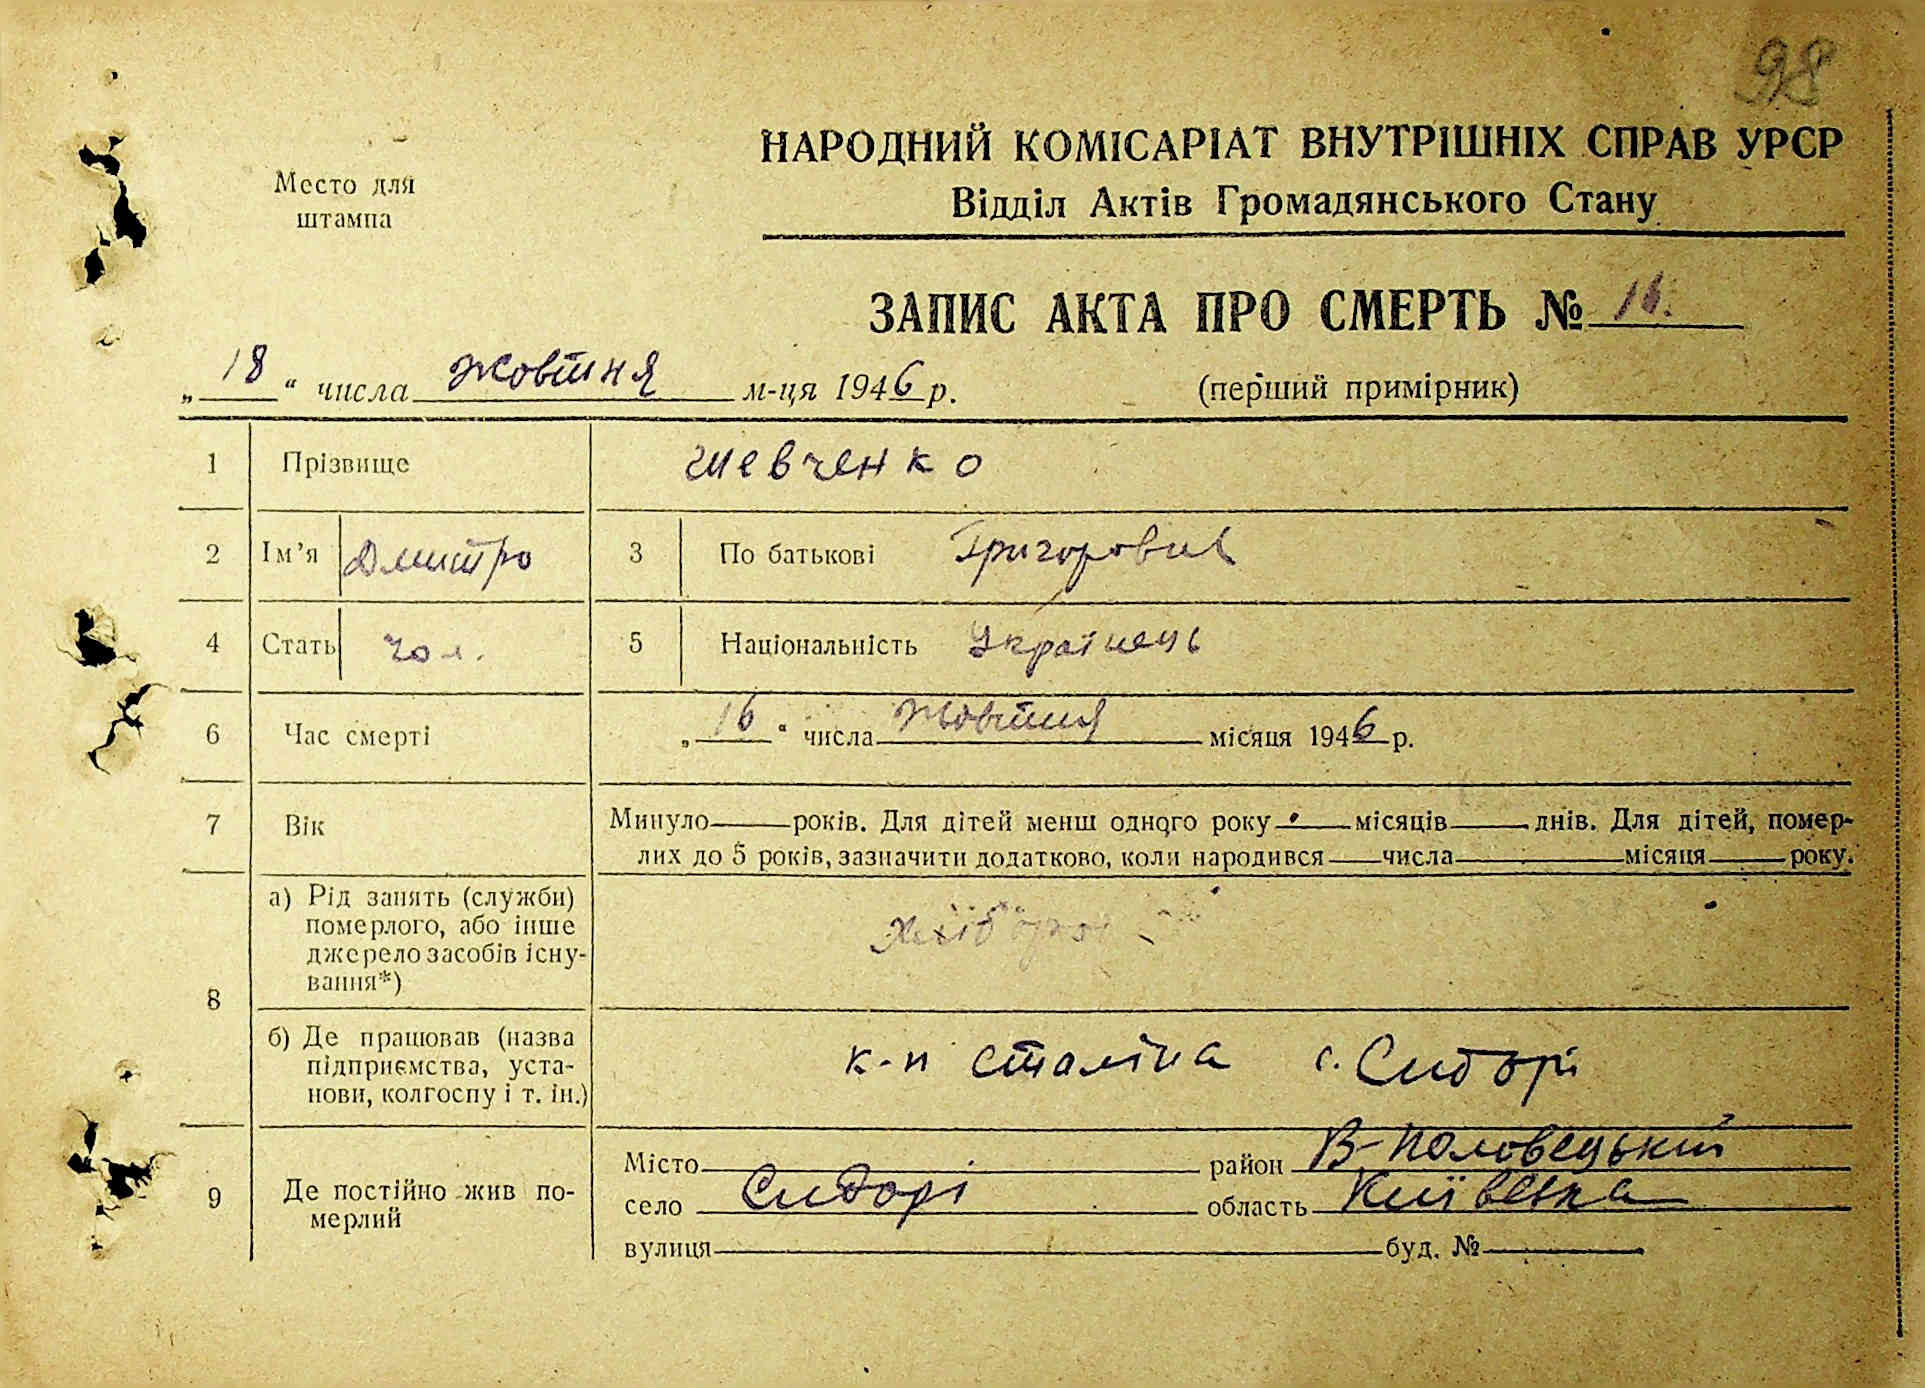 98
НАРОДНИЙ КОМІСАРІАТ ВНУТРІШНІХ СПРАВ УРСР
Место для
штампа
Відділ Актів Громадянського Стану
ЗАПИС АКТА ПРО СМЕРТЬ № 16.
„ 18 “ числа жовтня м-ця 1946 р.
(перший примірник)
1 Прізвище Шевченко
2 Ім’я Дмитро 3 По батькові Григорович
4 Стать чол. 5 Національність Українець
6 Час смерті „ 16 “ числа Жовтня місяця 1946 р.
7 Вік Минуло років. Для дітей менш одного року місяців днів. Для дітей, помер-
лих до 5 років, зазначити додатково, коли народився числа місяця року.
8 а) Рід занять (служби)
померлого, або інше
джерело засобів існу-
вання*)
б) Де працював (назва
підприємства, уста-
нови, колгоспу і т. ін.)
к-п Сталіна с. Сидорі
9 Де постійно жив по-
мерлий
Місто район В-Половецький
село Сидорі область Київська
вулиця буд. №